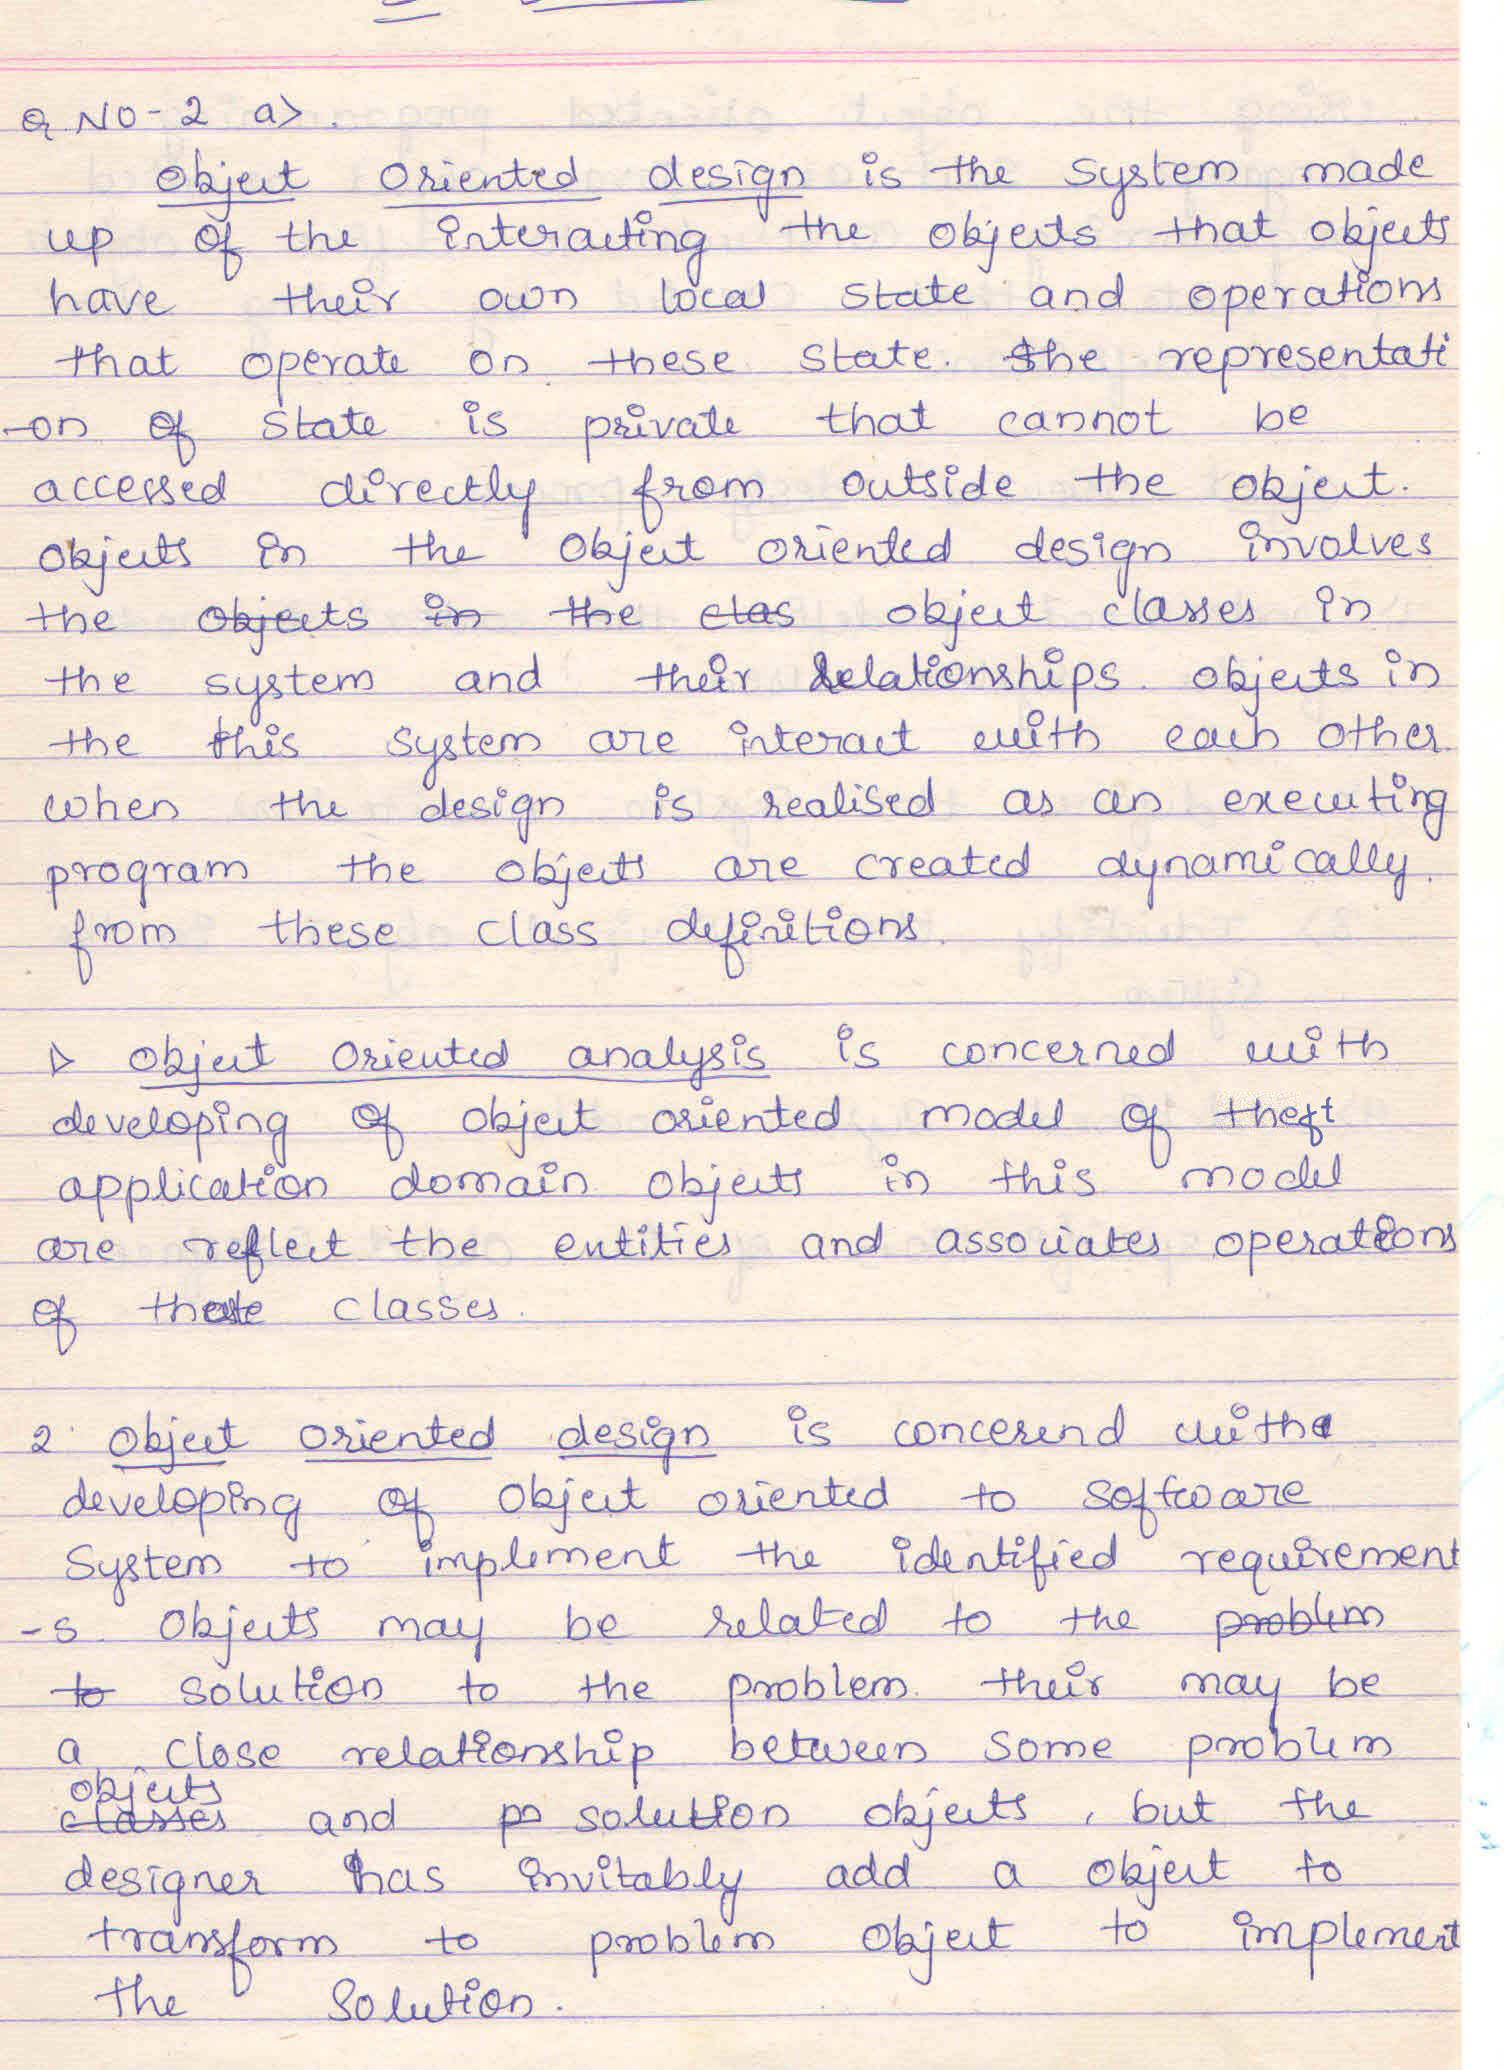 Q NO-2 a>.
Object Oriented design is the system made
up of the interacting the objects that objects
have their own local state and operations
that operate on these state. The representati
-on of state is private that cannot be
accessed directly from outside the object.
Objects in the object oriented design involves
the objects in the clas object classes in
the system and their relationships. objects in
the this system are interact with each other.
when the design is realised as an executing
program the objects are created dynamically.
from these class definitions.
1> Object Oriented analysis is concerned with
developing of object oriented model of the
application domain. objects in this model
are reflect the entities and associates operations
of classes.
2. Object oriented design is concerend with
developing of object oriented to software
System to implement the identified requirement
-s. Objects may be related to the problem
to solution to the problem. their may be
a close relationship between some problem
objects
classes and po solution objects, but the
designer has invitably add a object to
transform to problem object to implement
the Solution.